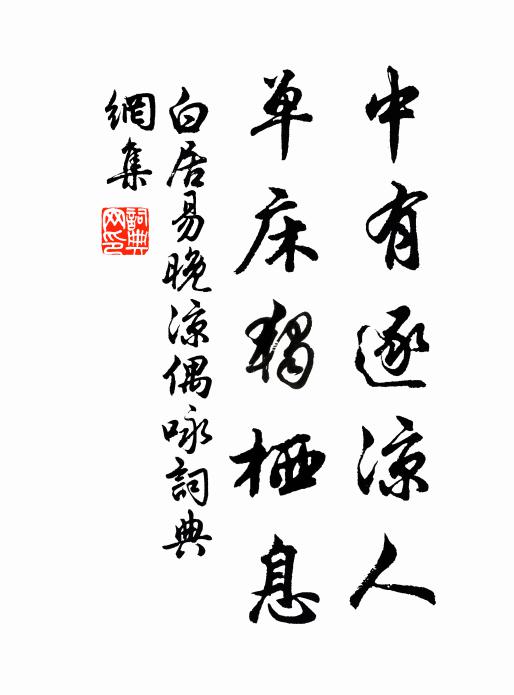 中有逐涼人
单床獨栖息
白居易晚涼偶咏詞典
網集
詞典网印